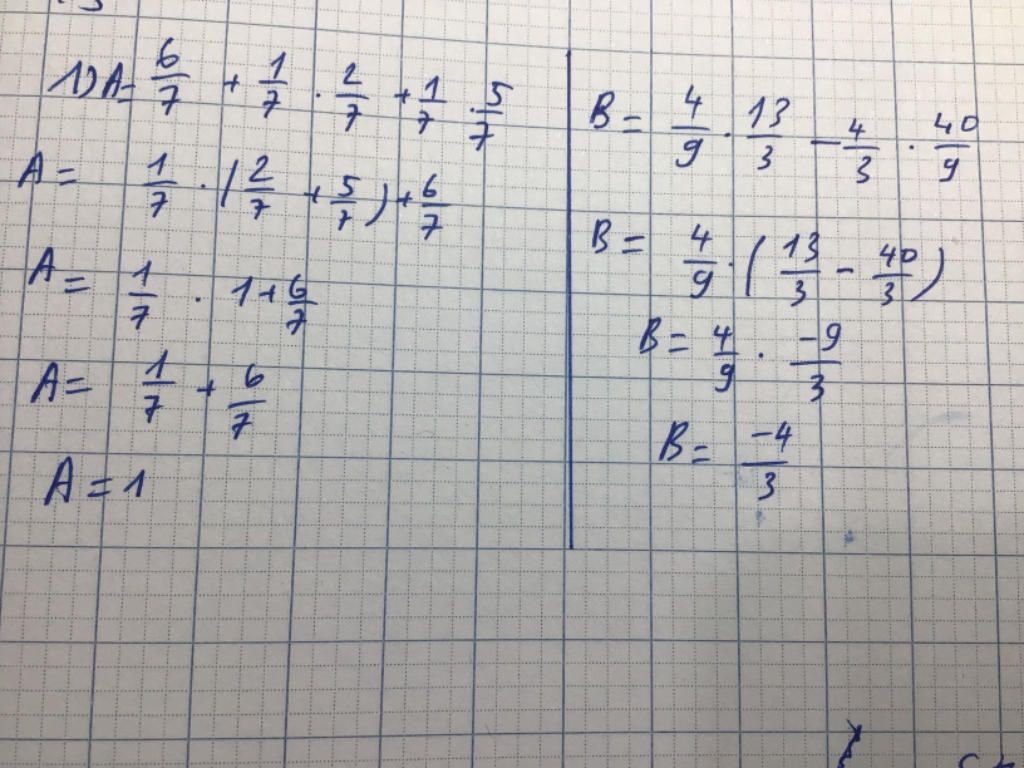 1) A= 6/7 + 1/7 . 2/7 + 1/7 . 5/7
A= 1/7 . (2/7 + 5/7) + 6/7
A= 1/7 . 1 + 6/7
A= 1/7 + 6/7
A=1
B= 4/9 . 13/3 - 4/3 . 40/9
B= 4/9 . (13/3 - 40/3)
B= 4/9 . -9/3
B= -4/3